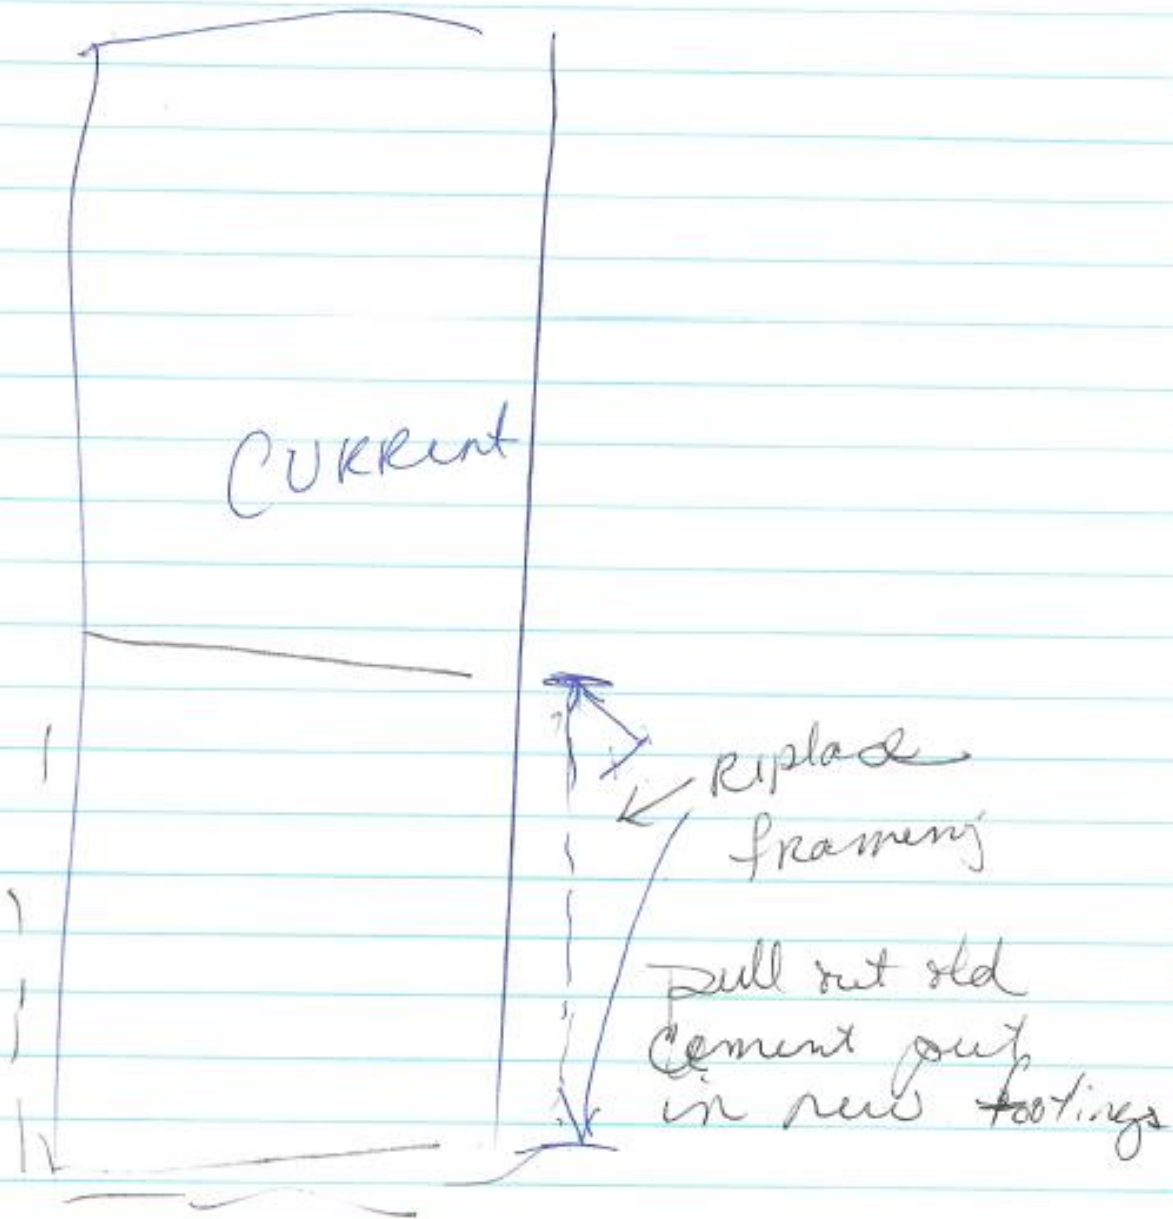 CURRent
Replace
framing
pull out old
cement put
in new footings